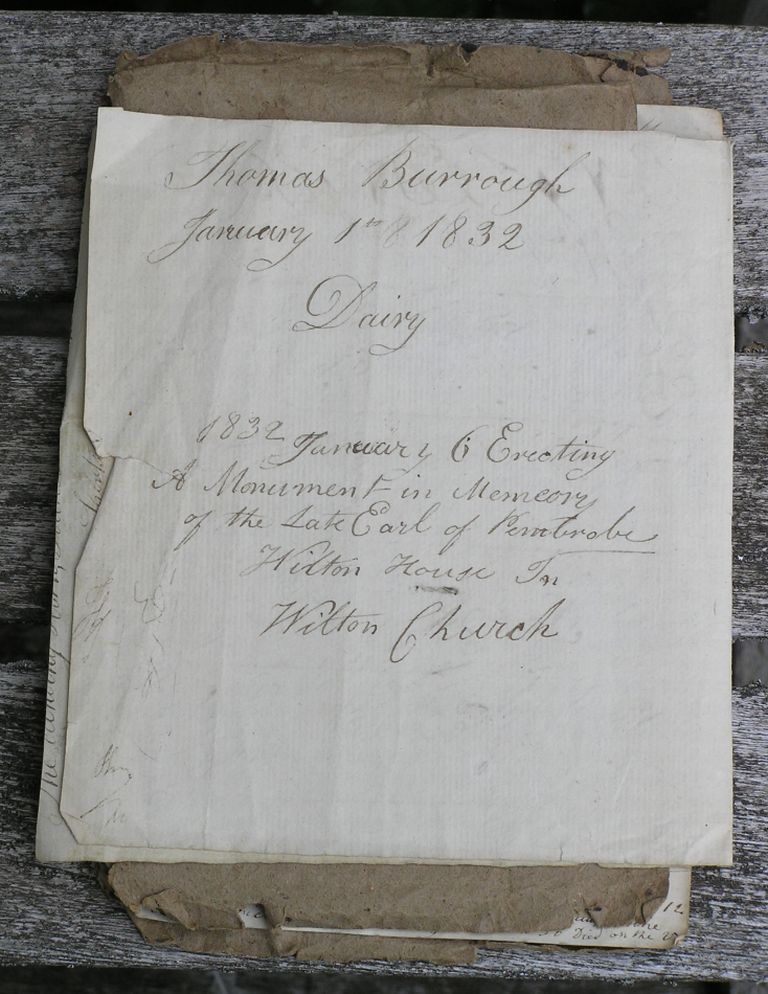 Thomas Burrough
January 1st 1832
Dairy
1832 January 6 Erecting
A Monument in Memeory
of the Late Earl of Pembrobe
Wilton House In
Wilton Church
12
the
Died on the